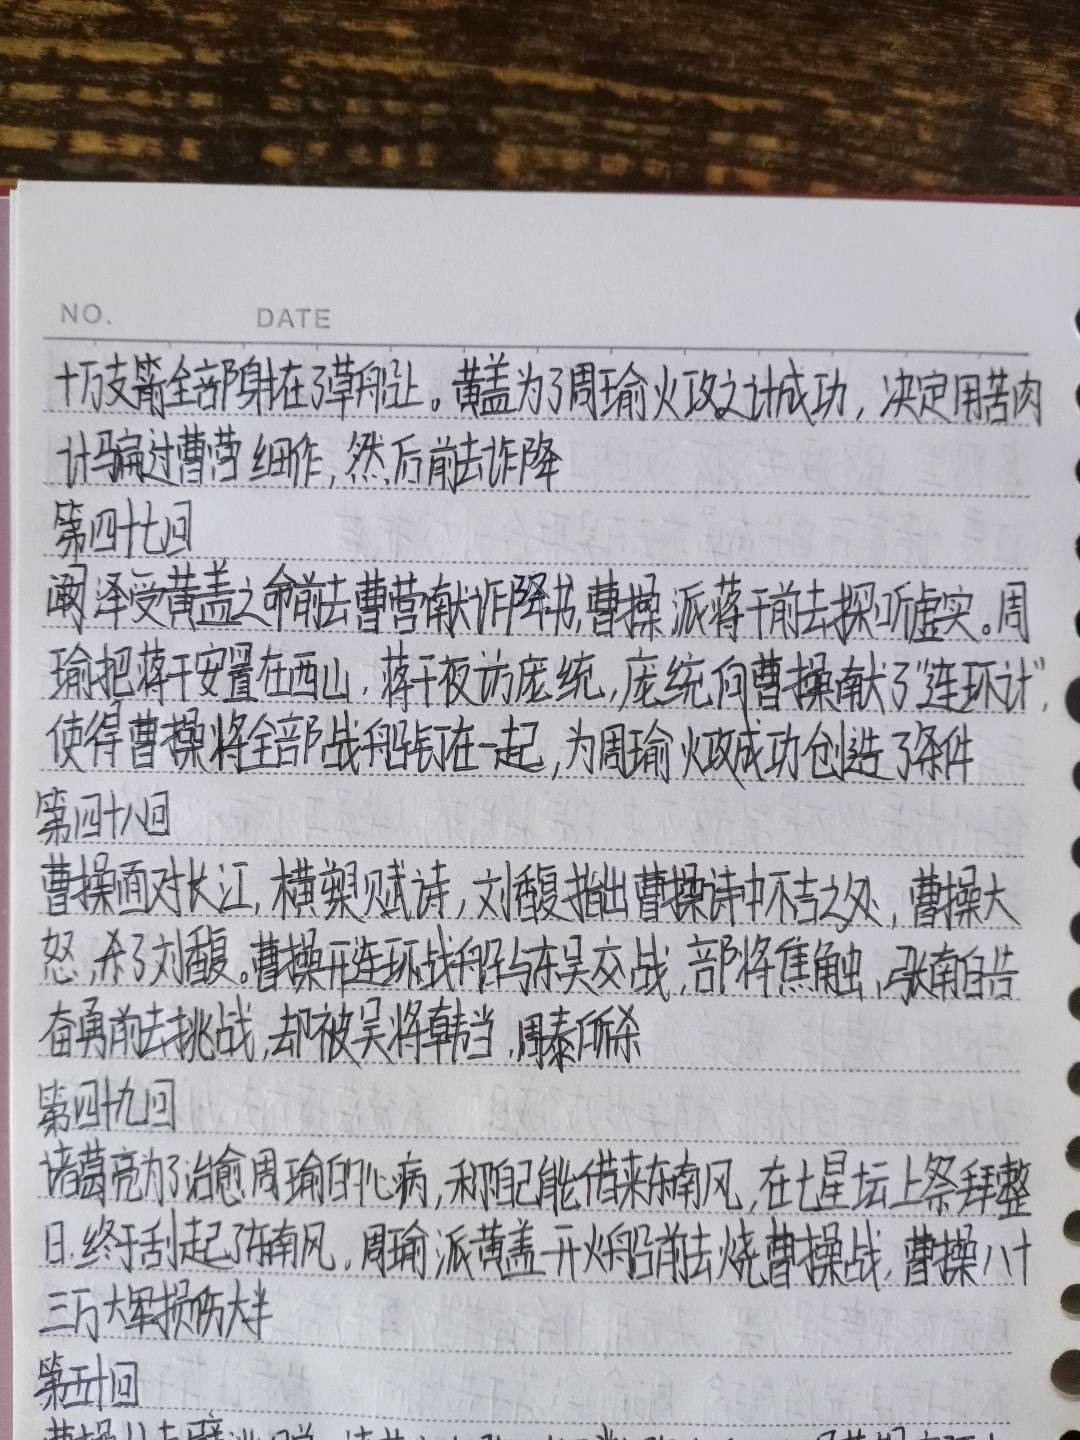 NO. DATE
十万支箭全部身在了草船让。黄盖为了周瑜火攻之计成功，决定用苦肉
计骗过曹营细作，然后前去诈降
第四十七回
阚泽受黄盖之命前去曹营献诈降书，曹操派蒋干前去探听虚实。周
瑜把蒋干安置在西山，蒋干夜访庞统，庞统向曹操献了“连环计”，
使得曹操将全部战船钉在一起，为周瑜火攻成功创造了条件
第四十八回
曹操面对长江，横槊赋诗，刘馥指出曹操诗中不吉之处，曹操大
怒，杀了刘馥。曹操开连环战船与东吴交战，部将焦触，张南自告
奋勇前去挑战，却被吴将韩当，周泰所杀
第四十九回
诸葛亮为了治愈周瑜的心病，利用自己能借来东南风，在七星坛上祭拜整
日，终于刮起了东南风，周瑜派黄盖开火船前去烧曹操战，曹操八十
三万大军损伤大半
第五十回
曹操从赤壁逃脱